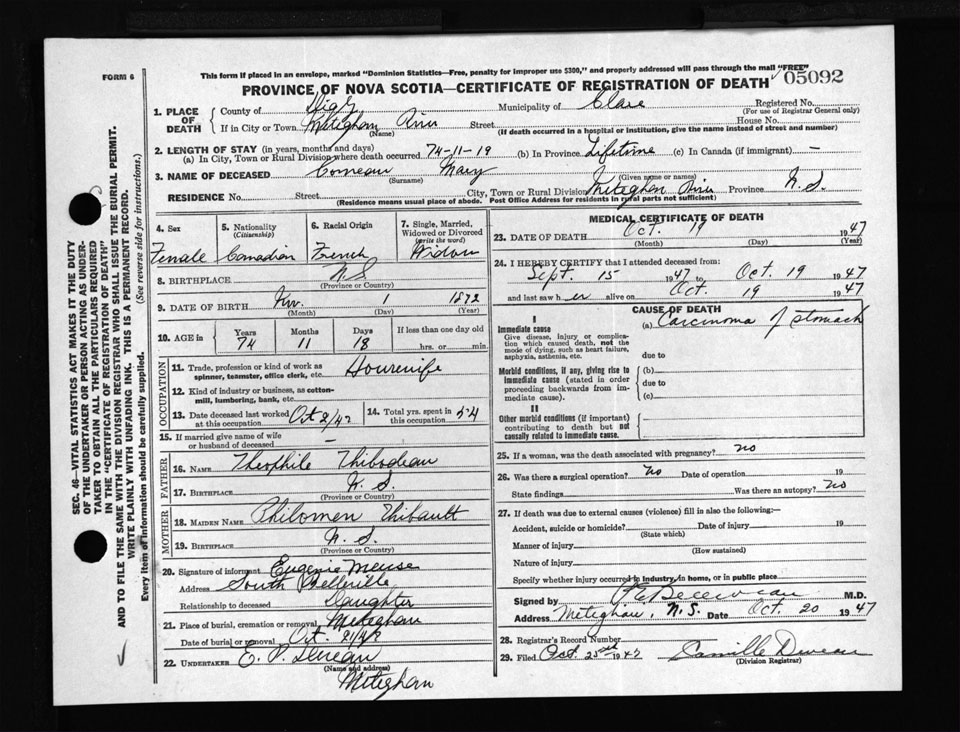 FORM 6
This form if placed in an envelope, marked "Dominion Statistics—Free, penalty for improper use $300," and properly addressed will pass through the mail "FREE"
PROVINCE OF NOVA SCOTIA—CERTIFICATE OF REGISTRATION OF DEATH 05092
1. PLACE OF DEATH County of Digby Municipality of Clare Registered No.
(For use of Registrar General only)
If in City or Town Meteghan River Street House No.
(Name) (If death occurred in a hospital or institution, give the name instead of street and number)
2. LENGTH OF STAY (in years, months and days)
(a) In City, Town or Rural Division where death occurred 74-11-19 (b) In Province Lifetime (c) In Canada (if immigrant) —
3. NAME OF DECEASED Comeau Mary
(Surname) (Given name or names)
RESIDENCE No. Street City, Town or Rural Division Meteghan River Province N.S.
(Residence means usual place of abode. Post Office Address for residents in rural parts not sufficient)
4. Sex 5. Nationality (Citizenship) 6. Racial Origin 7. Single, Married, Widowed or Divorced (write the word)
Female Canadian French Widow
8. BIRTHPLACE N.S.
(Province or Country)
9. DATE OF BIRTH Nov. 1 1872
(Month) (Day) (Year)
10. AGE in Years Months Days If less than one day old
74 11 18 hrs. or min.
OCCUPATION
11. Trade, profession or kind of work as spinner, teamster, office clerk, etc. Housewife
12. Kind of industry or business, as cotton-mill, lumbering, bank, etc.
13. Date deceased last worked at this occupation Oct 2/47 14. Total yrs. spent in this occupation 54
15. If married give name of wife or husband of deceased —
FATHER
16. NAME Theophile Thibodeau
17. BIRTHPLACE N. S.
(Province or Country)
MOTHER
18. MAIDEN NAME Philomen Thibault
19. BIRTHPLACE N. S.
(Province or Country)
20. Signature of informant Eugenie Meuse
Address South Belleville
Relationship to deceased Daughter
21. Place of burial, cremation or removal Meteghan
Date of burial or removal Oct 21/47
22. UNDERTAKER E. P.
(Name and address)
Meteghan
MEDICAL CERTIFICATE OF DEATH
23. DATE OF DEATH Oct. 19 1947
(Month) (Day) (Year)
24. I HEREBY CERTIFY that I attended deceased from:
Sept. 15 1947 to Oct. 19 1947
and last saw her alive on Oct. 19 1947
CAUSE OF DEATH
I
Immediate cause (a) Carcinoma of stomach
Give disease, injury or complication which caused death, not the mode of dying, such as heart failure, asphyxia, asthenia, etc.
due to
Morbid conditions, if any, giving rise to immediate cause (stated in order proceeding backwards from immediate cause). (b)
due to
(c)
II
Other morbid conditions (if important) contributing to death but not causally related to immediate cause.
25. If a woman, was the death associated with pregnancy? no
26. Was there a surgical operation? No Date of operation 19
State findings Was there an autopsy? No
27. If death was due to external causes (violence) fill in also the following:—
Accident, suicide or homicide? Date of injury 19
(State which)
Manner of injury
(How sustained)
Nature of injury
Specify whether injury occurred in industry, in home, or in public place
Signed by M.D.
Address Meteghan, N.S. Date Oct. 20 1947
28. Registrar's Record Number
29. Filed Oct. 25th 1947 Camille Deveau
(Division Registrar)
SEC. 46—VITAL STATISTICS ACT MAKES IT THE DUTY OF THE UNDERTAKER OR PERSON ACTING AS UNDERTAKER TO OBTAIN ALL THE PARTICULARS REQUIRED IN THE "CERTIFICATE OF REGISTRATION OF DEATH" AND TO FILE THE SAME WITH THE DIVISION REGISTRAR WHO SHALL ISSUE THE BURIAL PERMIT.
WRITE PLAINLY WITH UNFADING INK. THIS IS A PERMANENT RECORD.
Every item of information should be carefully supplied. (See reverse side for instructions.)